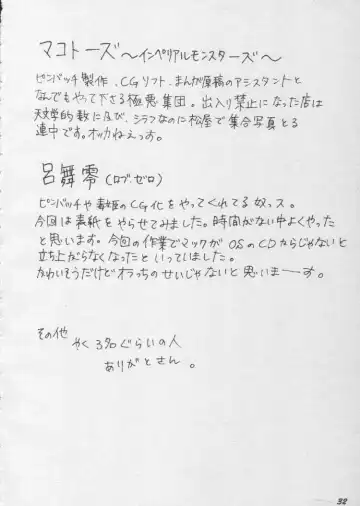 マコトーズ〜インペリアルモンスターズ〜
ピンバッチ製作、CGソフト、まんが原稿のアシスタントと
なんでもやって下さる極悪集団。出入り禁止になった店は
天文学的数に及び、シラフなのに松屋で集合写真とる
連中です。オッカねえっす。
呂舞零(ロブゼロ)
ピンバッチや表姫のCG化をやってくれてる奴っス。
今回は表紙をやらせてみました。時間がない中よくやった
と思います。今回の作業でマックがOSのCDからじゃないと
立ち上がらなくなったといっていました。
かわいそうだけどオラっちのせいじゃないと思いまーす。
その他
やく3名ぐらいの人
ありがとさん。
32